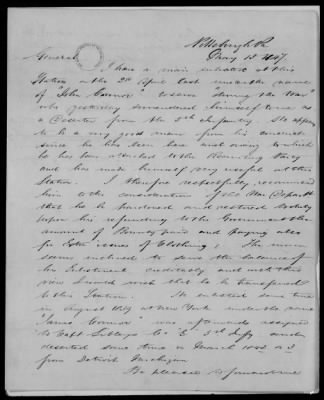 Pittsburgh Pa
May 13 1847
General
I have a man enlisted at this
Station on the 2d April last under the name
of "John Connor" to serve "during the War"
who yesterday surrendered himself to me as
a Deserter from the 5th Infantry. He appears
to be a very good man from his conduct
since he has been here and owing to which
he has been attached to the Recruiting Party
and has made himself very useful at this
Station. I therefore respectfully recommend
him to the consideration of the War Department
that he be pardoned and restored to duty
upon his refunding to the Government the
amount of Bounty paid and paying also
for Extra issues of Clothing; The man
seems inclined to serve the balance of
his Enlistment creditably and with this
view I would wish that he be transferred
to this Station. He enlisted some time
in August 1841 at New York under the name
"James Connor" was afterwards assigned
to Capt Co "E" 5th Infy and
deserted some time in March 1842 or 3
from Detroit Michigan
Be pleased to